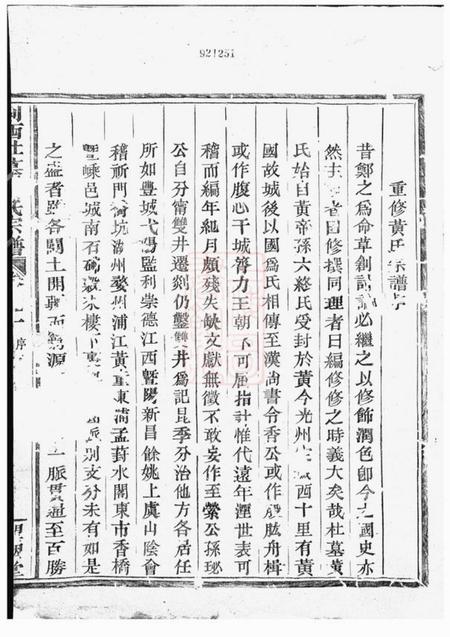 921251
重修黃氏宗譜序
昔鄭之爲命草創討論必繼之以修飾潤色卽今之國史亦
然主 者曰修撰同理者曰編修修之時義大矣哉杜墓黃
氏始自黃帝孫六終氏受封於黃今光州 城西十里有黃
國故城後以國爲氏相傳至漢尚書令香公或作股肱舟楫
或作腹心干城膂力王朝不可屈指計惟代遠年湮世表可
稽而編年紀月頗殘失缺文獻無徵不敢妄作至縈公孫玭
公自分甯雙井遷剡仍鑿雙井爲記昆季分治他方各居任
所如豐城弋陽監利崇德江西暨陽新昌餘姚上虞山陰會
稽 門 坑 州婺州浦江黃 東浦孟葑水閣東市香橋
暨嵊邑城南石 樓下 派別支分未有如是
之盛者雖各闢土開 西 源 一脈貫通至百勝
剡西杜墓 氏宗譜 序